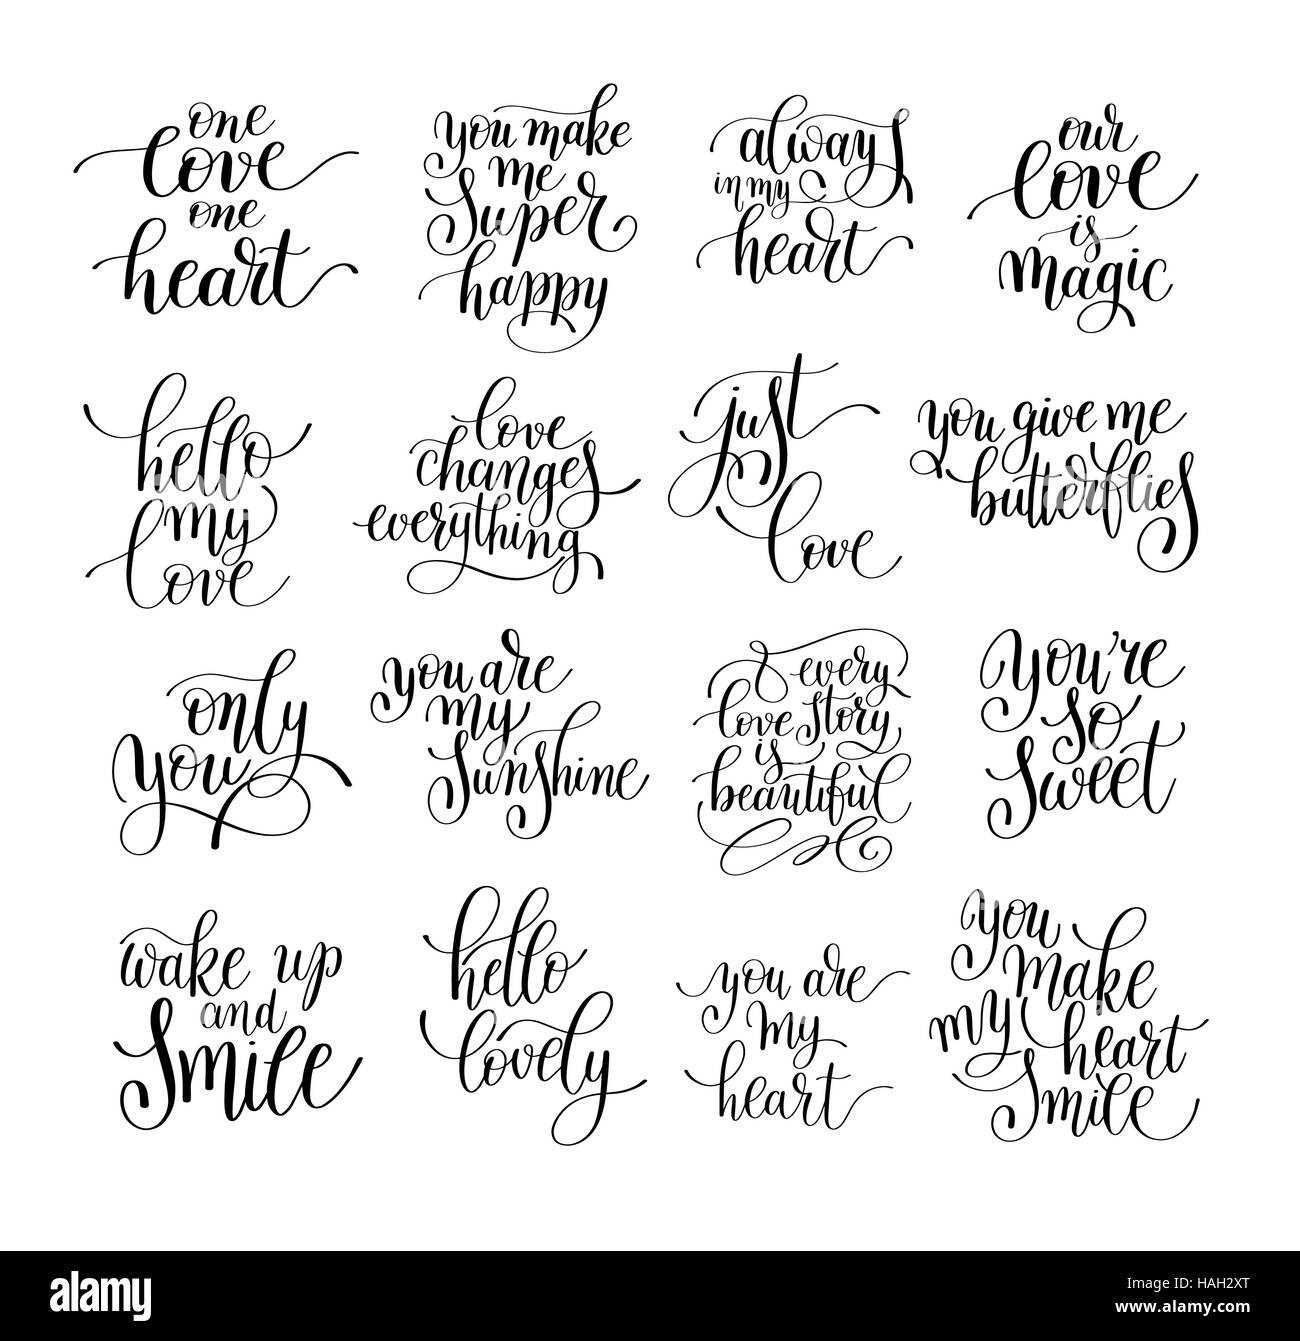 one
love
one
heart
you make
me
super
happy
always
in my
heart
our
love
is
magic
hello
my
love
love
changes
everything
just
love
you give me
butterflies
only
you
you are
my
sunshine
every
love story
is
beautiful
You're
so
sweet
wake up
and
Smile
hello
lovely
you are
my
heart
you
make
my heart
smile
alamy
a
alamy
Image ID: HAH2XT
www.alamy.com